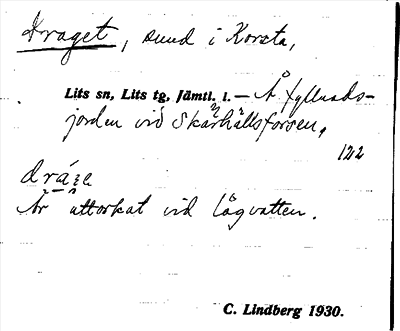 Draget, sund i Korsta,
Lits sn, Lits tg, Jämtl. l. — Å fyllnads-
jorden vid Skärhällsforsen,
122
Är uttorkat vid lågvatten.
C. Lindberg 1930.